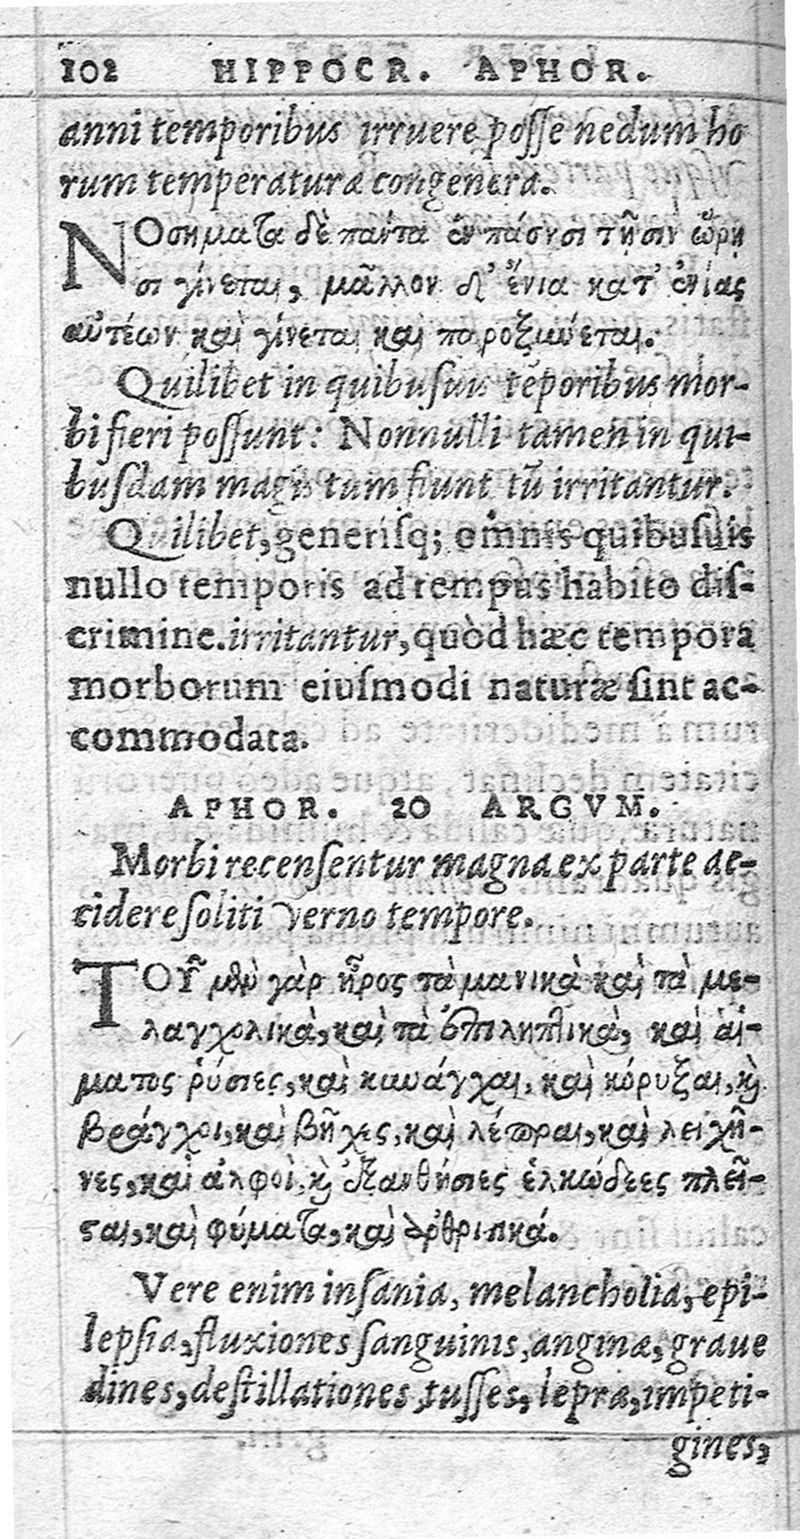 102 HIPPOCR. APHOR.
anni temporibus irruere posse nedum ho
rum temperaturæ congenera.
ΝΟσήματα δὲ πάντα ἐν πάσῃσι τῇσιν ὥρῃ
σι γίνεται, μᾶλλον δ' ἔνια κατ' ἐνίας
αὐτέων καὶ γίνεται καὶ παροξύνεται.
Quilibet in quibusuis tēporibus mor-
bi fieri possunt: Nonnulli tamen in qui-
busdam magis tum fiunt tū irritantur.
Quilibet, generisq; omnis quibusuis
nullo temporis ad tempus habito dis-
crimine. irritantur, quòd hæc tempora
morborum eiusmodi naturæ sint ac-
commodata.
APHOR. 20 ARGVM.
Morbi recensentur magna ex parte ac-
cidere soliti verno tempore.
ΤΟΥ͂ μὲν γὰρ ἦρος τὰ μανικὰ καὶ τὰ με-
λαγχολικὰ, καὶ τὰ ἐπιληπτικὰ, καὶ αἵ-
ματος ῥύσιες, καὶ κυνάγχαι, καὶ κόρυζαι, καὶ
βράγχοι, καὶ βῆχες, καὶ λέπραι, καὶ λειχῆ-
νες, καὶ ἀλφοὶ, καὶ ἐξανθήσιες ἑλκώδεες πλεῖ-
σται, καὶ φύματα, καὶ ἀρθριτικά.
Vere enim insania, melancholia, epi-
lepsia, fluxiones sanguinis, anginæ, graue
dines, destillationes, tusses, lepræ, impeti-
gines,